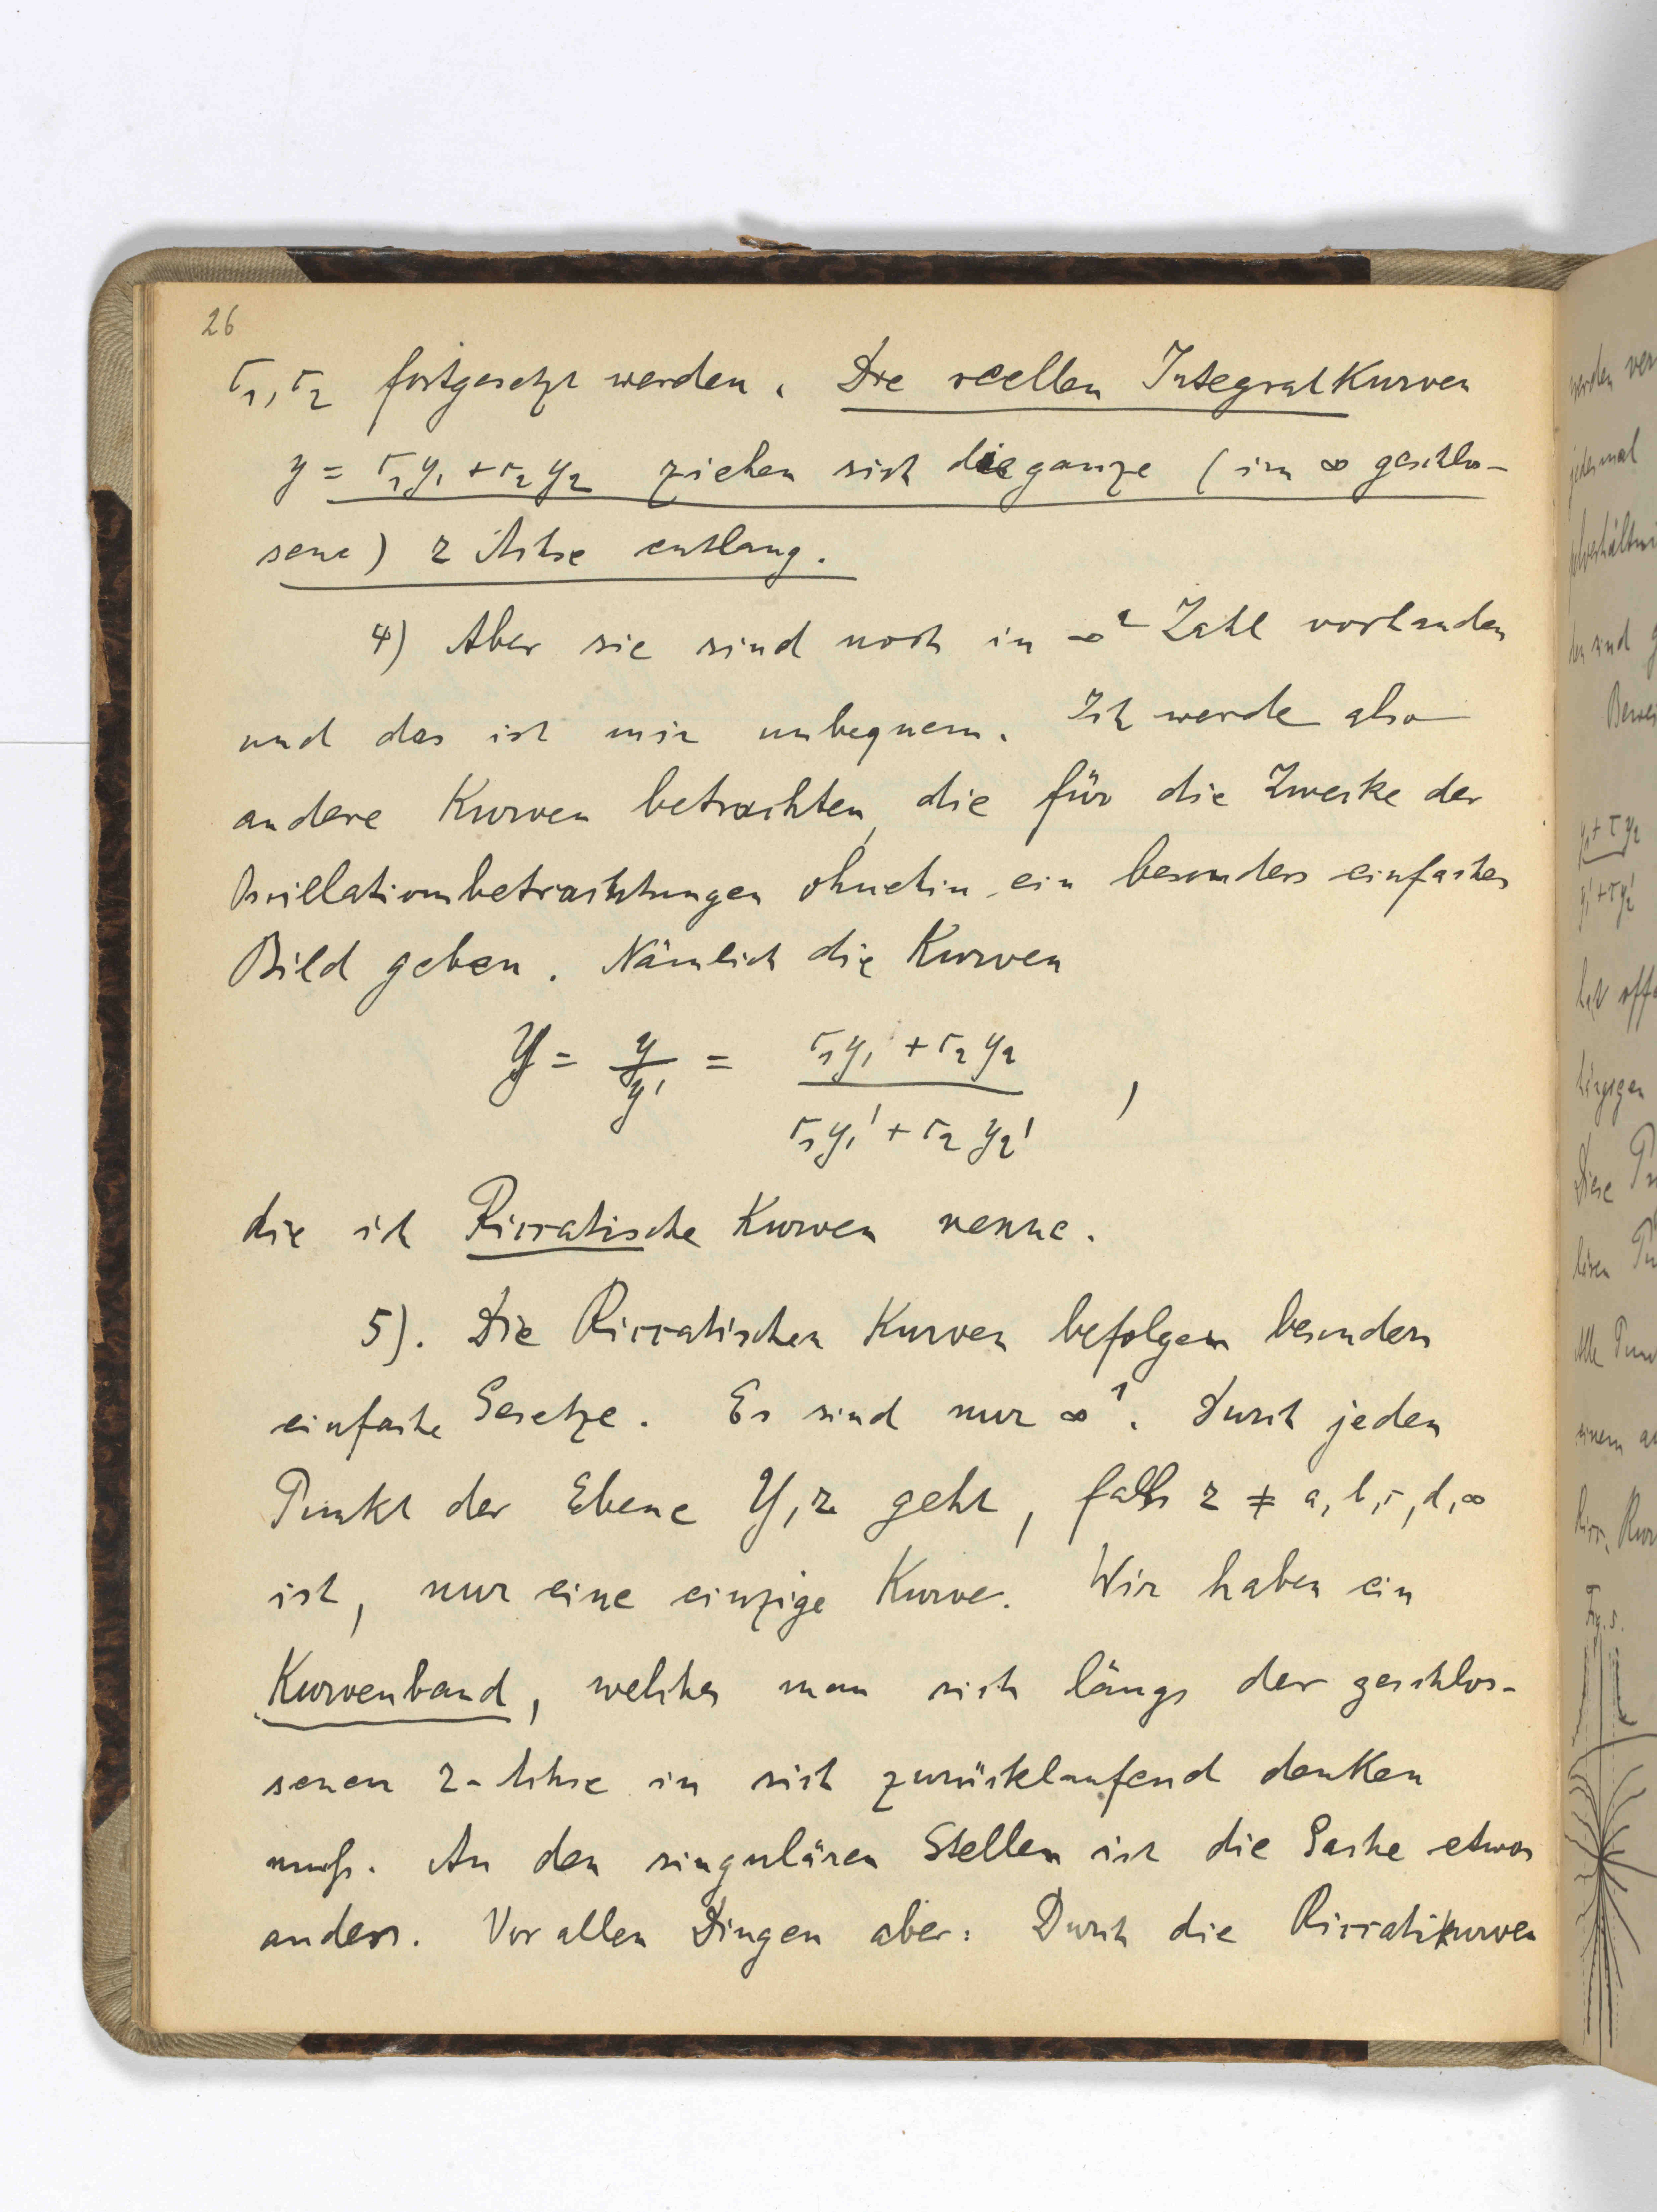 26
c₁, c₂ fortgesetzt werden. Die reellen Integralkurven
y = c₁y₁ + c₂y₂ ziehen sich die ganze (im ∞ geschlos-
sene) z Achse entlang.
4) Aber sie sind noch in ∞² Zahl vorhanden
und das ist mir unbequem. Ich werde also
andere Kurven betrachten, die für die Zwecke der
Oscillationsbetrachtungen ohnehin ein besonders einfaches
Bild geben. Nämlich die Kurven
Y = y/y' = (c₁y₁ + c₂y₂)/(c₁y₁' + c₂y₂') ,
die ich Riccatische Kurven nenne.
5). Die Riccatischen Kurven befolgen besonders
einfache Gesetze. Es sind nur ∞¹. Durch jeden
Punkt der Ebene Y, z geht, falls z ≠ a, b, c, d, ∞
ist, nur eine einzige Kurve. Wir haben ein
Kurvenband, welches man sich längs der geschlos-
senen z-Achse in sich zurücklaufend denken
muß. An den singulären Stellen ist die Sache etwas
anders. Vor allen Dingen aber: Durch die Riccatikurven
werden
jedesmal
sind
y₁ + c y₂
y₁' + c y₂'
hingegen
Diese
Alle
einem
Ricc. Kur
Fig. 5.